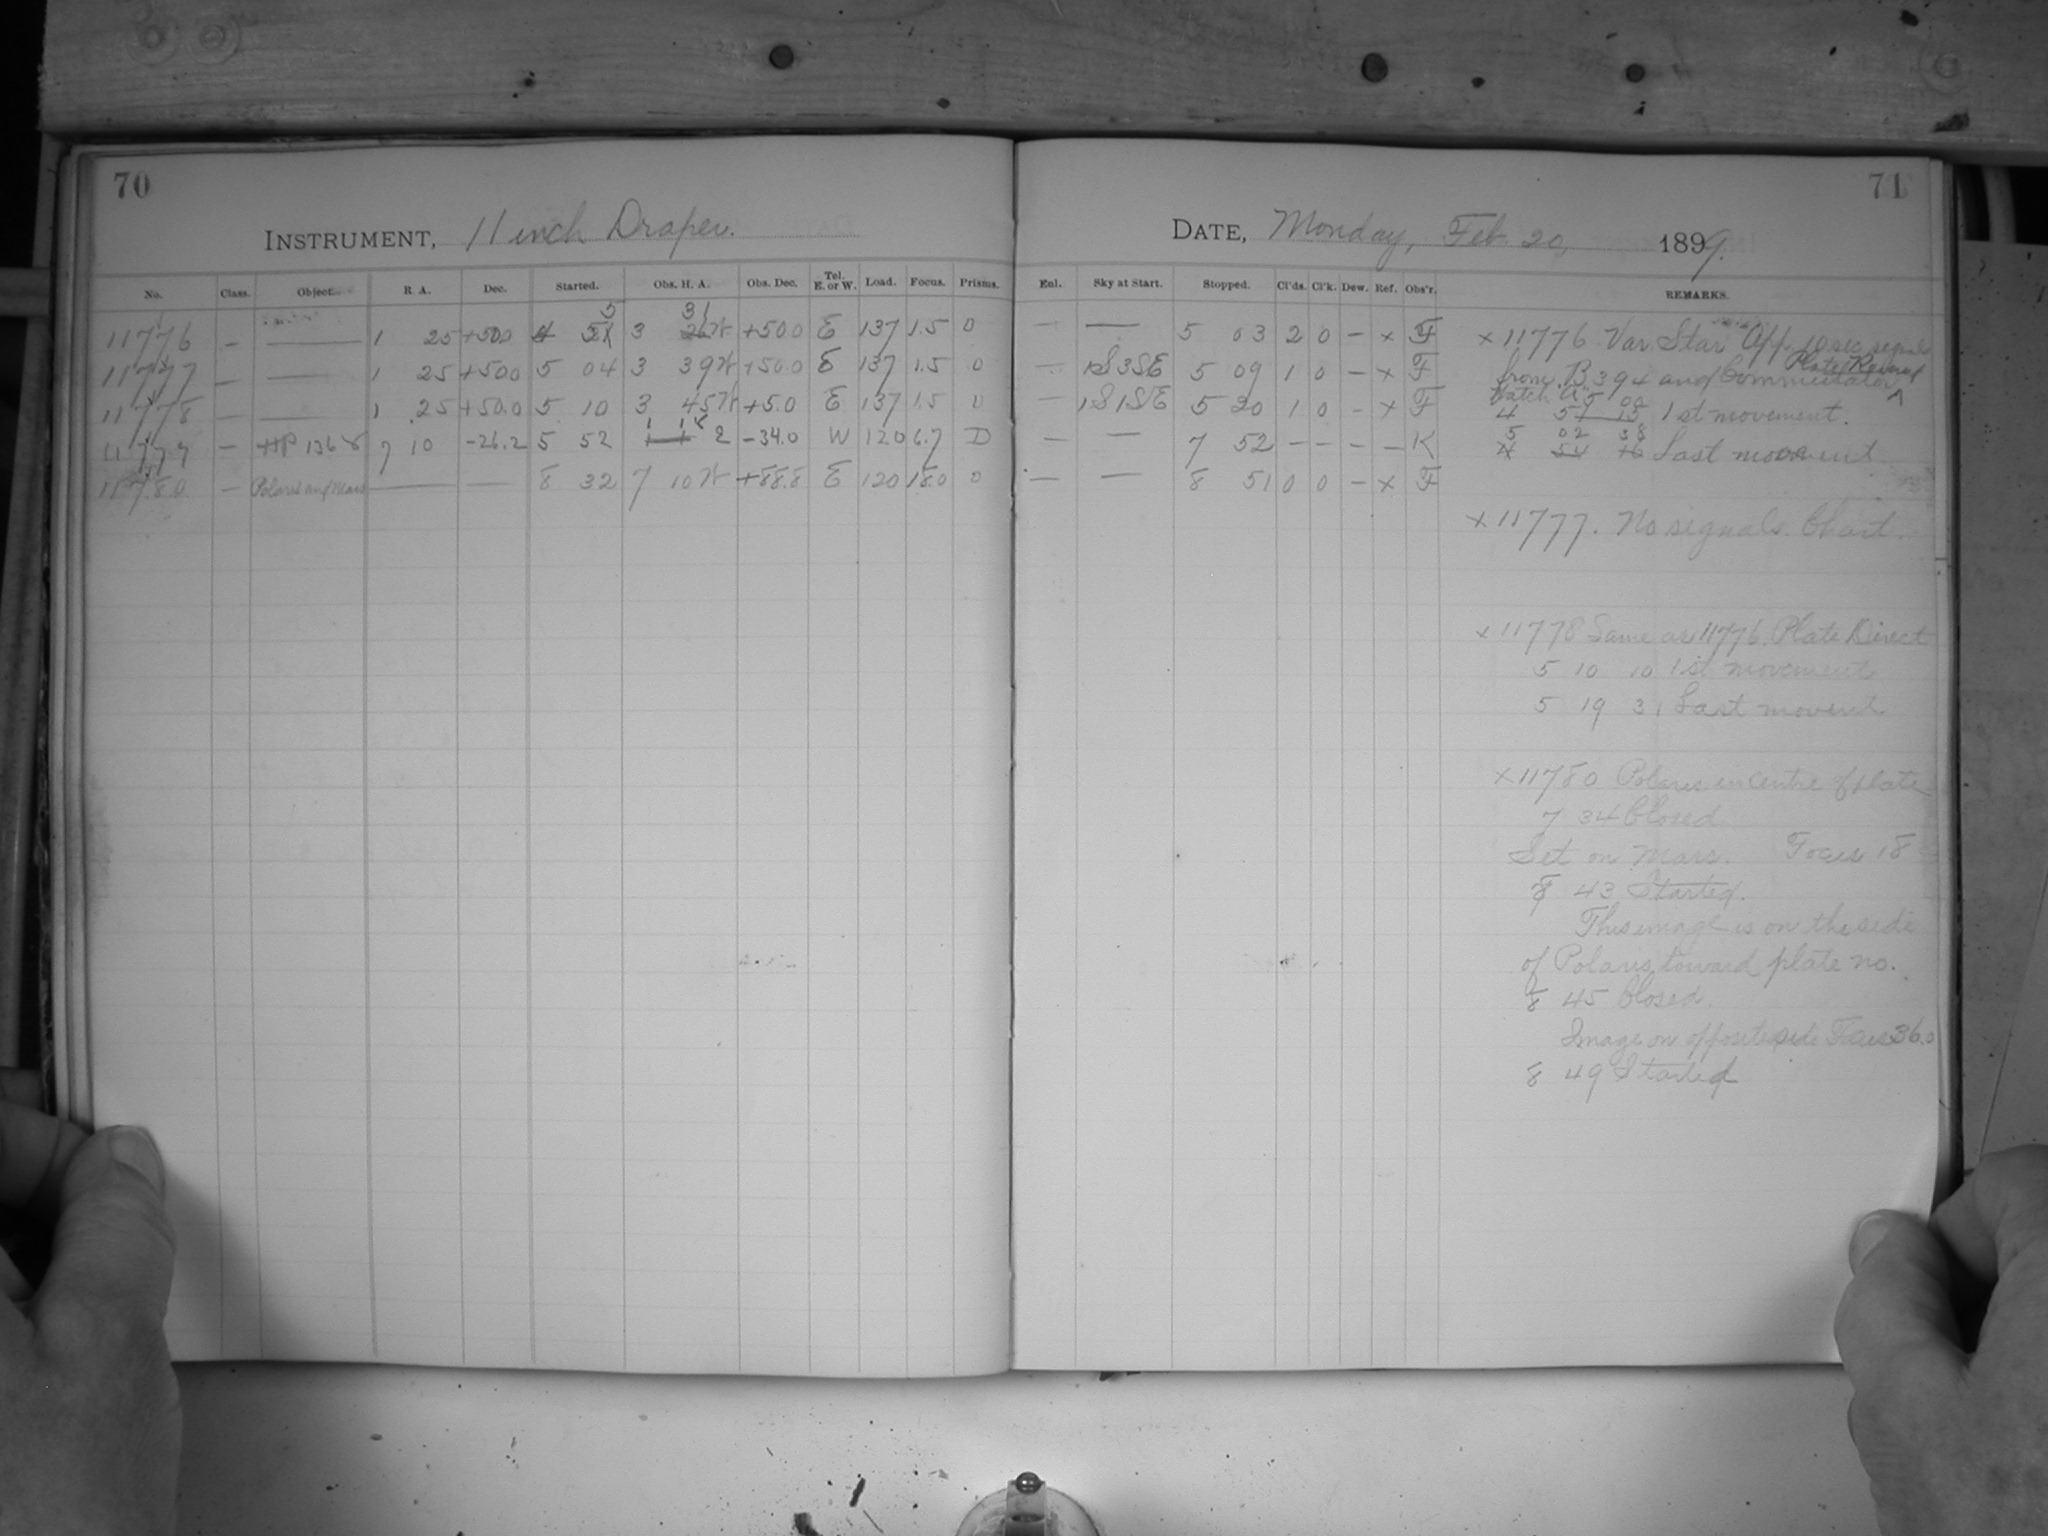 70
INSTRUMENT, 11 inch Draper.
No. Class. Object. R. A. Dec. Started. Obs. H. A. Obs. Dec. Tel. E. or W. Load. Focus. Prisms.
5 31
11776 – — 1 25 +50.0 4 51 3 26 W +50.0 E 137 1.5 0
11777 – — 1 25 +50.0 5 04 3 39 W +50.0 E 137 1.5 0
11778 – — 1 25 +50.0 5 10 3 45 W +5.0 E 137 1.5 0
11779 – HP 1368 7 10 -26.2 5 52 1 18 E -34.0 W 120 6.7 D
11780 – Polaris and Mars — — 8 32 7 10 W +88.8 E 120 18.0 0
71
DATE, Monday, Feb. 20, 1899.
Enl. Sky at Start. Stopped. Cl'ds. Cl'k. Dew. Ref. Obs'r. REMARKS.
— — 5 03 2 0 – x F
— 1S3SE 5 09 1 0 – x F
— 1S1SE 5 20 1 0 – x F
— — 7 52 – – – – K
— — 8 51 0 0 – x F
x 11776 Var Star App. 10 sec signals
from B394 and Commutator Plate Reversed
Watch A 5 00
4 51 15 1st movement.
5 02 38
4 54 16 Last movement
x 11777. No signals. Chart.
x 11778 Same as 11776. Plate Direct
5 10 10 1st movement
5 19 31 Last movent
x 11780 Polaris in Centre of plate
7 34 Closed
Set on Mars. Focus 18
8 43 Started.
This image is on the side
of Polaris toward plate no.
8 45 Closed.
Image on opposite side Focus 36.0
8 49 Started